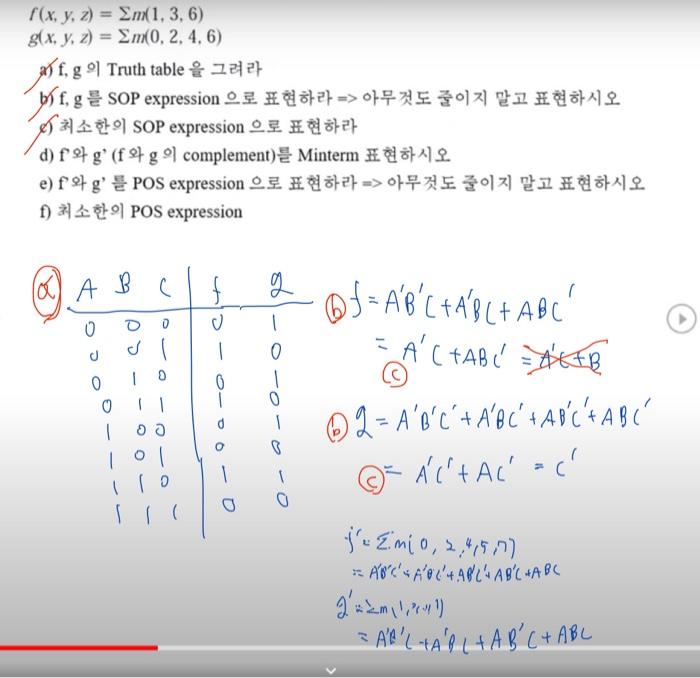 f(x, y, z) = Σm(1, 3, 6)
g(x, y, z) = Σm(0, 2, 4, 6)
a) f, g 의 Truth table 을 그려라
b) f, g 를 SOP expression 으로 표현하라 => 아무것도 줄이지 말고 표현하시오
c) 최소한의 SOP expression 으로 표현하라
d) f'와 g' (f 와 g 의 complement)를 Minterm 표현하시오
e) f'와 g' 를 POS expression 으로 표현하라 => 아무것도 줄이지 말고 표현하시오
f) 최소한의 POS expression
ⓐ A B C f g
0 0 0 0 1
0 0 1 1 0
0 1 0 0 1
0 1 1 1 0
1 0 0 0 1
1 0 1 0 0
1 1 0 1 1
1 1 1 0 0
ⓑ f = A'B'C + A'BC + ABC'
ⓒ = A'C + ABC' = A'C+B
ⓑ g = A'B'C' + A'BC' + AB'C' + ABC'
ⓒ = A'C' + AC' = C'
f' = Σm(0, 2, 4, 5, 7)
= A'B'C' + A'BC' + AB'C' + AB'C + ABC
g' = Σm(1,
= A'B'C + A'BC + AB'C + ABC